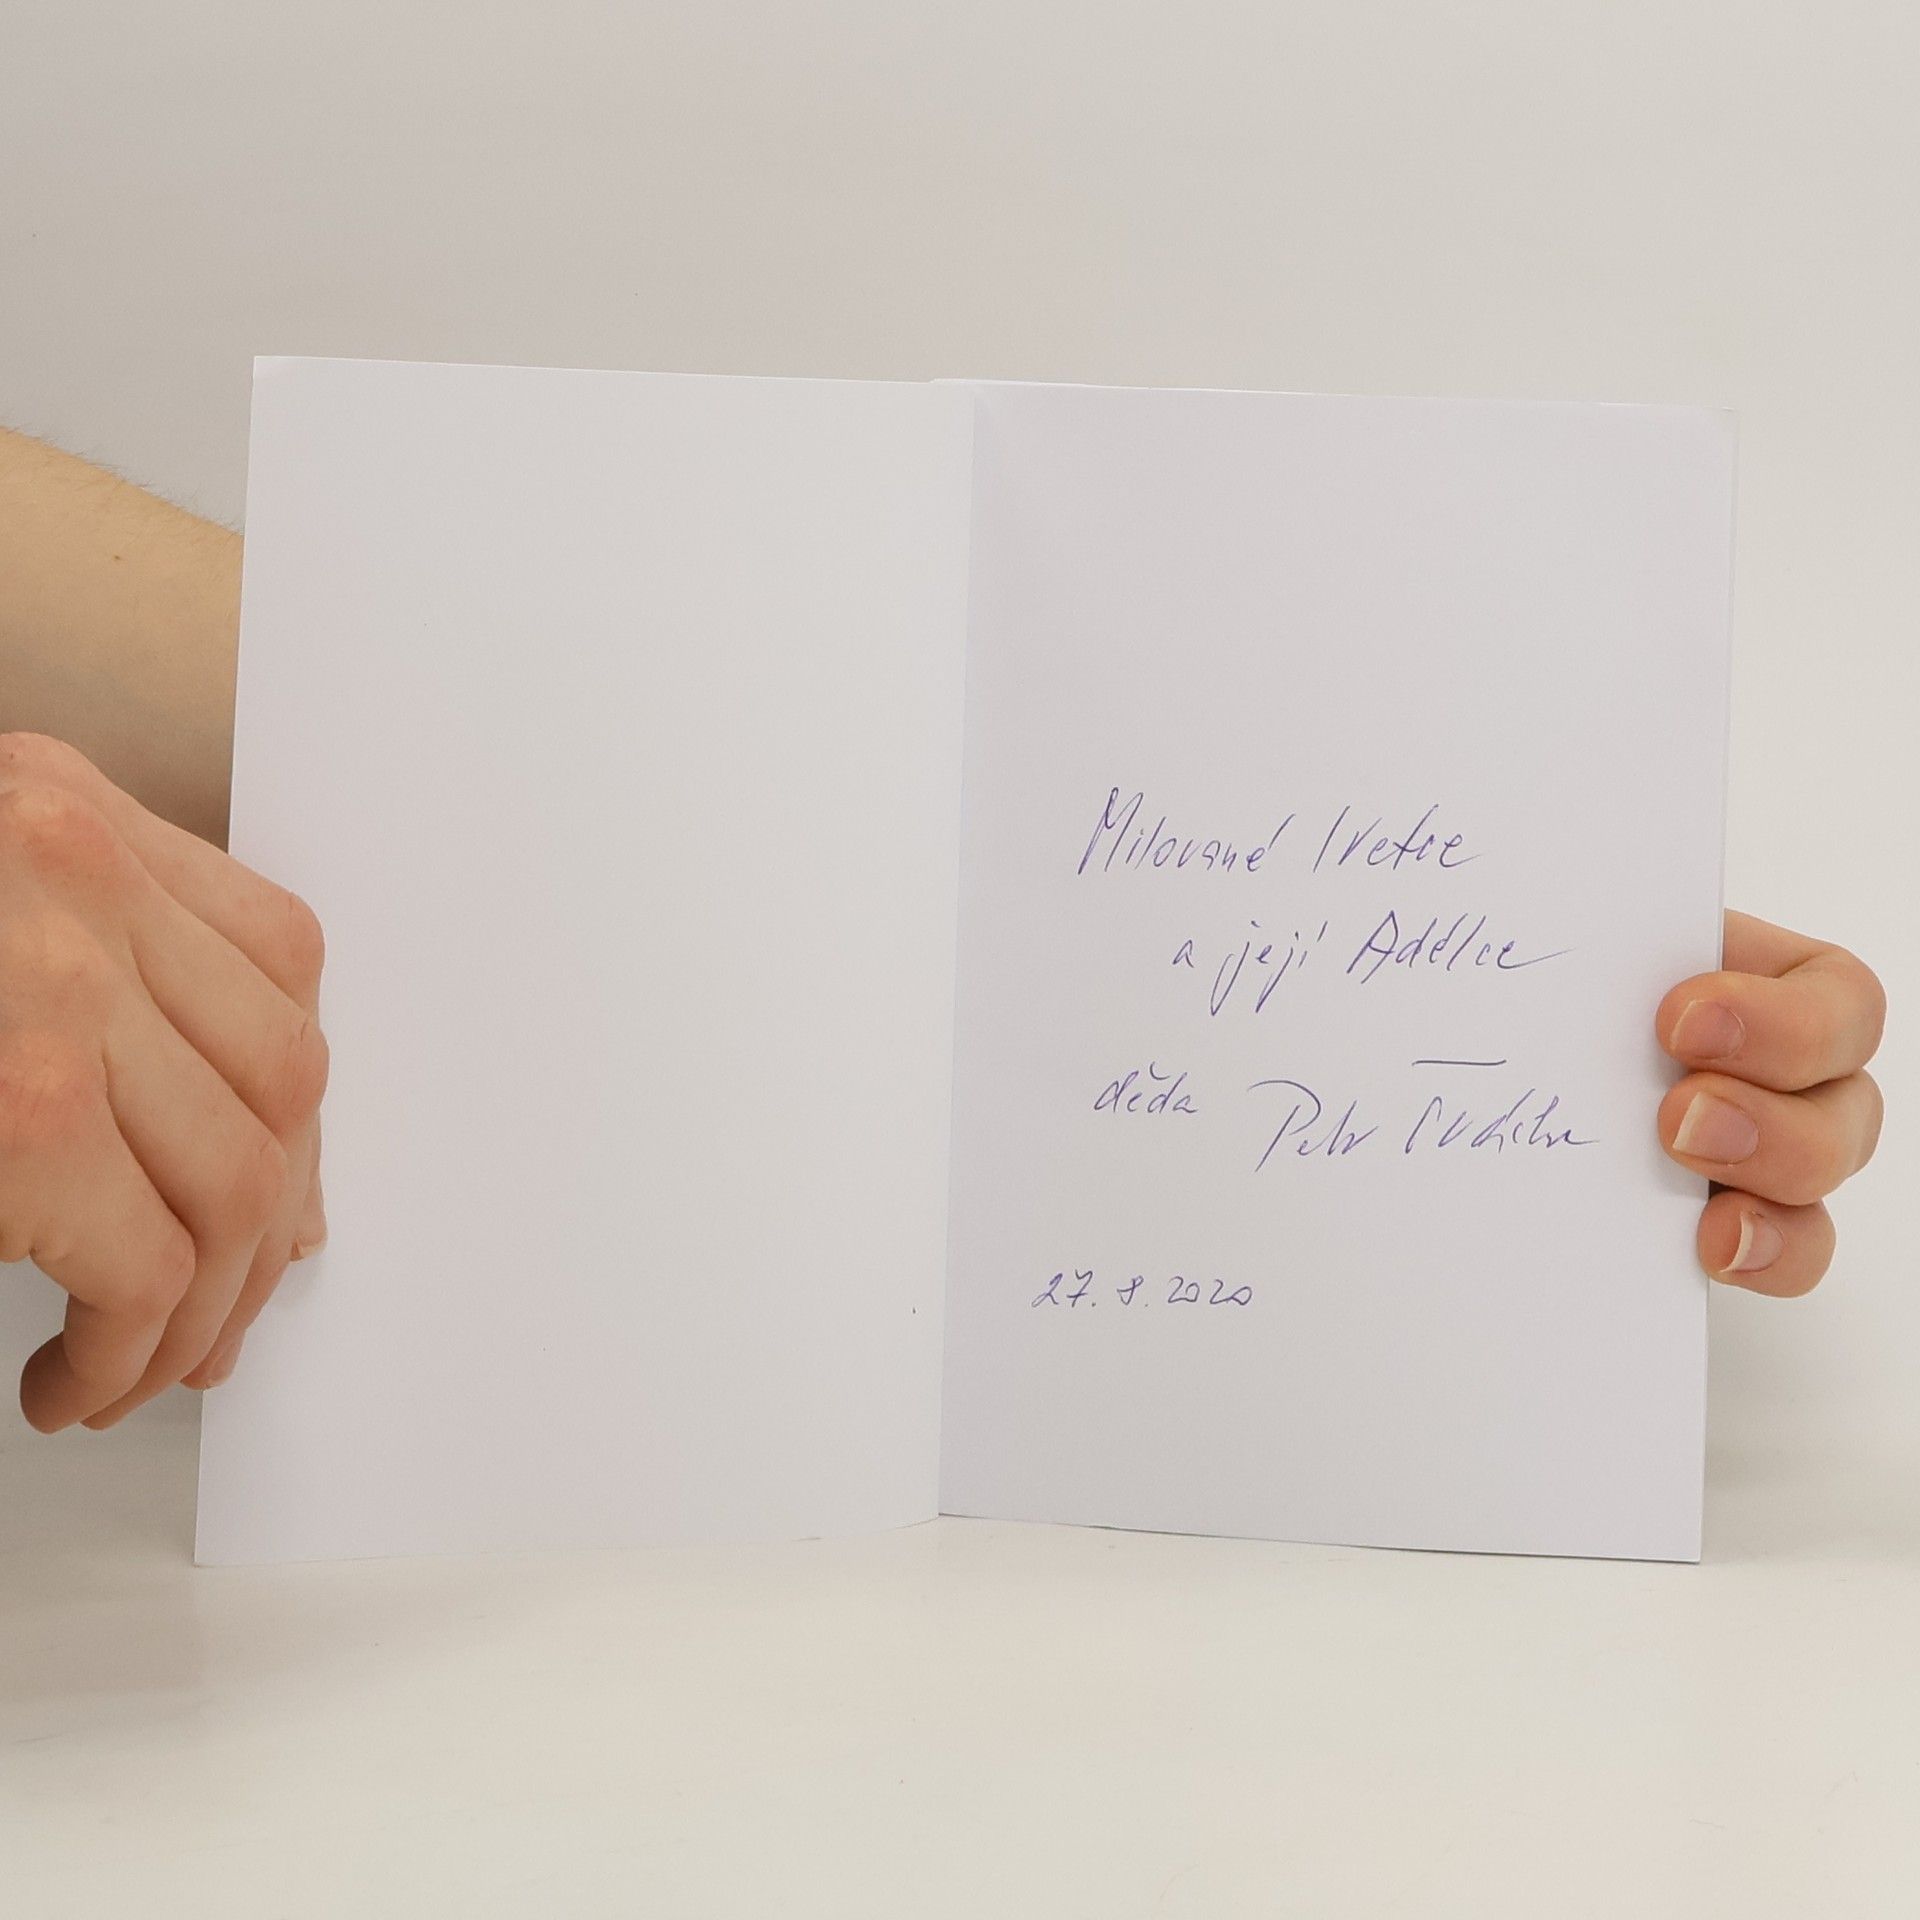 Milované Ivetce
a její Adélce
děda Petr
27. 8. 2020